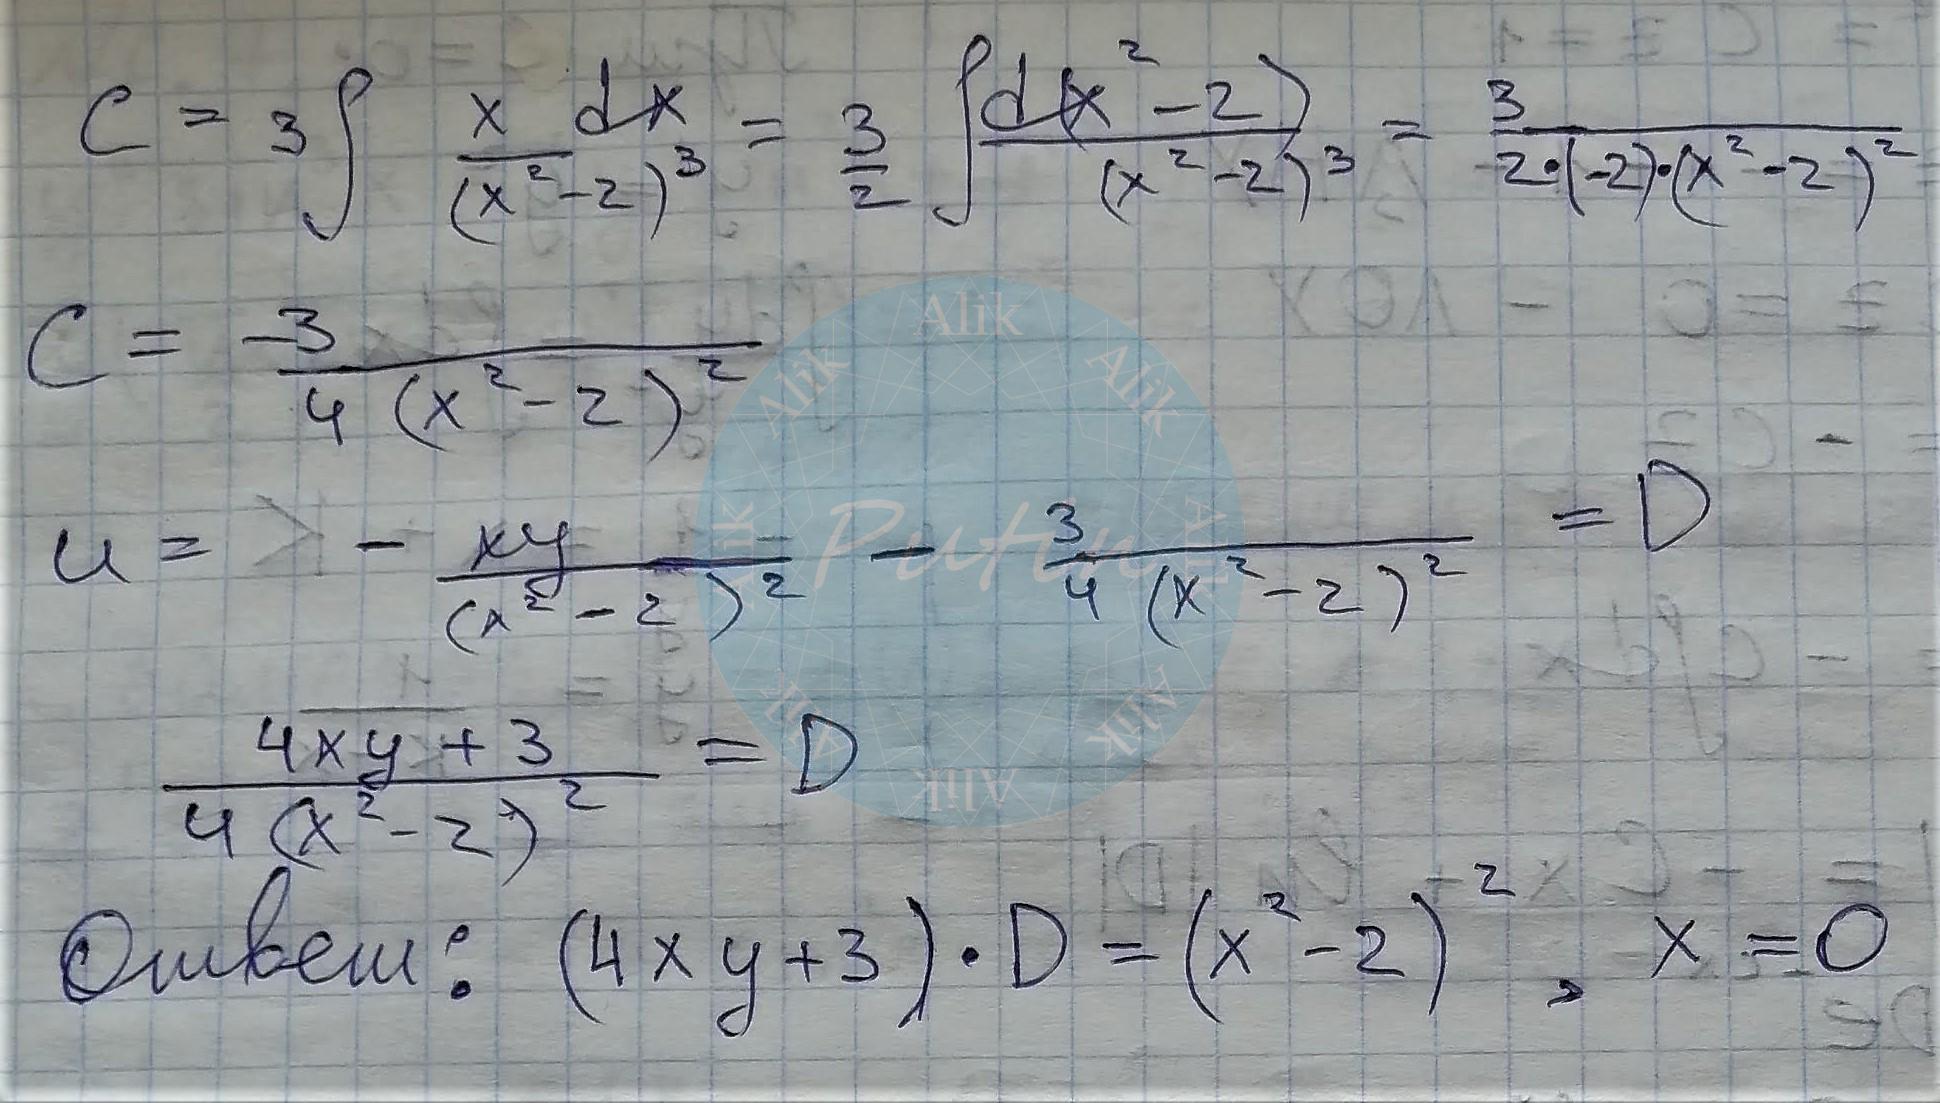 C = 3 ∫ x dx / (x² - 2)³ = 3/2 ∫ d(x² - 2) / (x² - 2)³ = 3 / 2·(-2)·(x² - 2)²
C = -3 / 4 (x² - 2)²
u = - xy / (x² - 2)² - 3 / 4 (x² - 2)² = D
4xy + 3 / 4 (x² - 2)² = D
Ответ: (4xy + 3) · D = (x² - 2)², x = 0
Alik
Alik
Alik
Alik
Alik
Alik
Alik
Alik
Putin